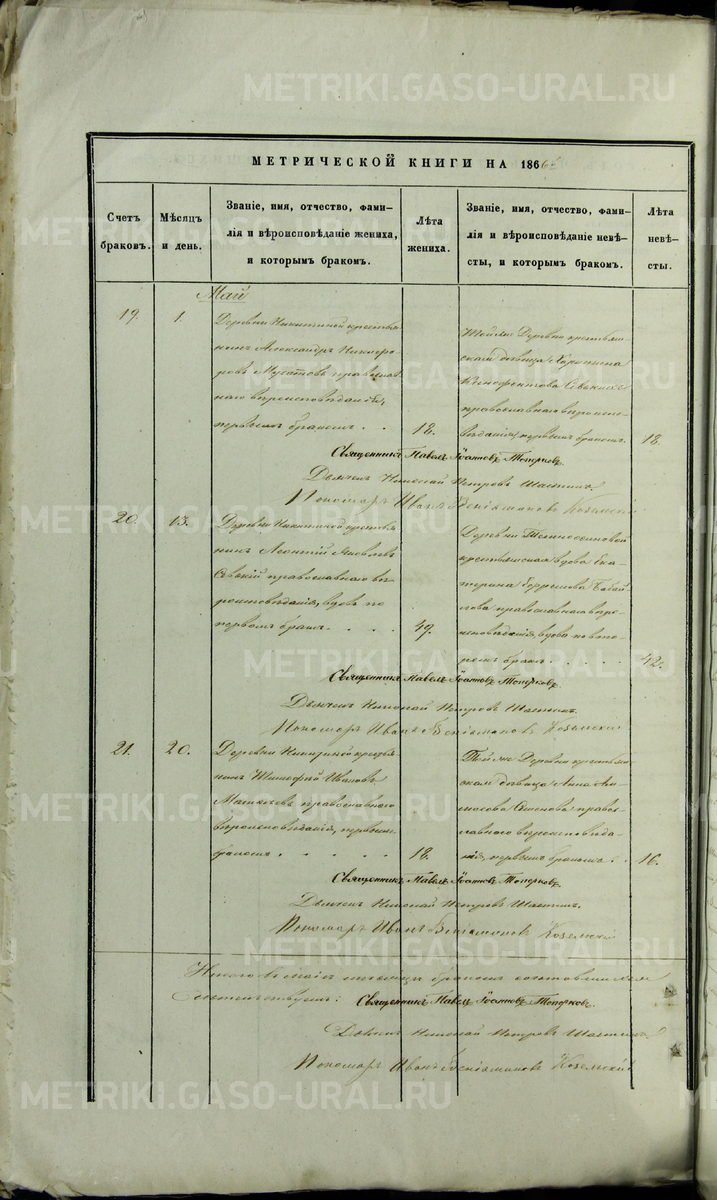 МЕТРИЧЕСКОЙ КНИГИ НА 186
Счетъ браковъ.
Мѣсяцъ и день.
Званіе, имя, отчество, фами-
лія и вѣроисповѣданіе жениха,
и которымъ бракомъ.
Лѣта жениха.
Званіе, имя, отчество, фами-
лія и вѣроисповѣданіе невѣ-
сты, и которымъ бракомъ.
Лѣта невѣ-
сты.
Май
19.
1.
Деревни Никитиной крестья
нинъ Александръ
православ
наго вѣроисповѣданія,
первымъ бракомъ
18.
Тойже Деревни крестьян-
ская дѣвица
православнаго вѣроиспо-
вѣданія, первымъ бракомъ.
18.
Священникъ Павелъ Іоанновъ Топорковъ.
Дьячекъ Николай Петровъ
Пономарь Иванъ Веніаминовъ Козельскій
20.
13.
Деревни Никитиной крестья
нинъ Леонтій Яковлевъ
православнаго вѣ-
роисповѣданія, вдовъ по
первомъ бракѣ
49.
Деревни
крестьянская вдова Ека-
терина
православнаго вѣро-
исповѣданія, вдова по вто-
ромъ бракѣ
42.
Священникъ Павелъ Іоанновъ Топорковъ.
Дьячекъ Николай Петровъ
Пономарь Иванъ Веніаминовъ Козельскій
21.
20.
Деревни Никитиной крестья
нинъ Тимофей Ивановъ
православнаго
вѣроисповѣданія, первымъ
бракомъ
18.
Тойже Деревни крестьян
ская дѣвица Анна
правос
лавнаго вѣроисповѣда-
нія, первымъ бракомъ
16.
Священникъ Павелъ Іоанновъ Топорковъ.
Дьячекъ Николай Петровъ
Пономарь Иванъ Веніаминовъ Козельскій
маіѣ мѣсяцѣ браковъ
Священникъ Павелъ Іоанновъ Топорковъ.
Дьячекъ Николай Петровъ
Пономарь Иванъ Веніаминовъ Козельскій
METRIKI.GASO-URAL.RU